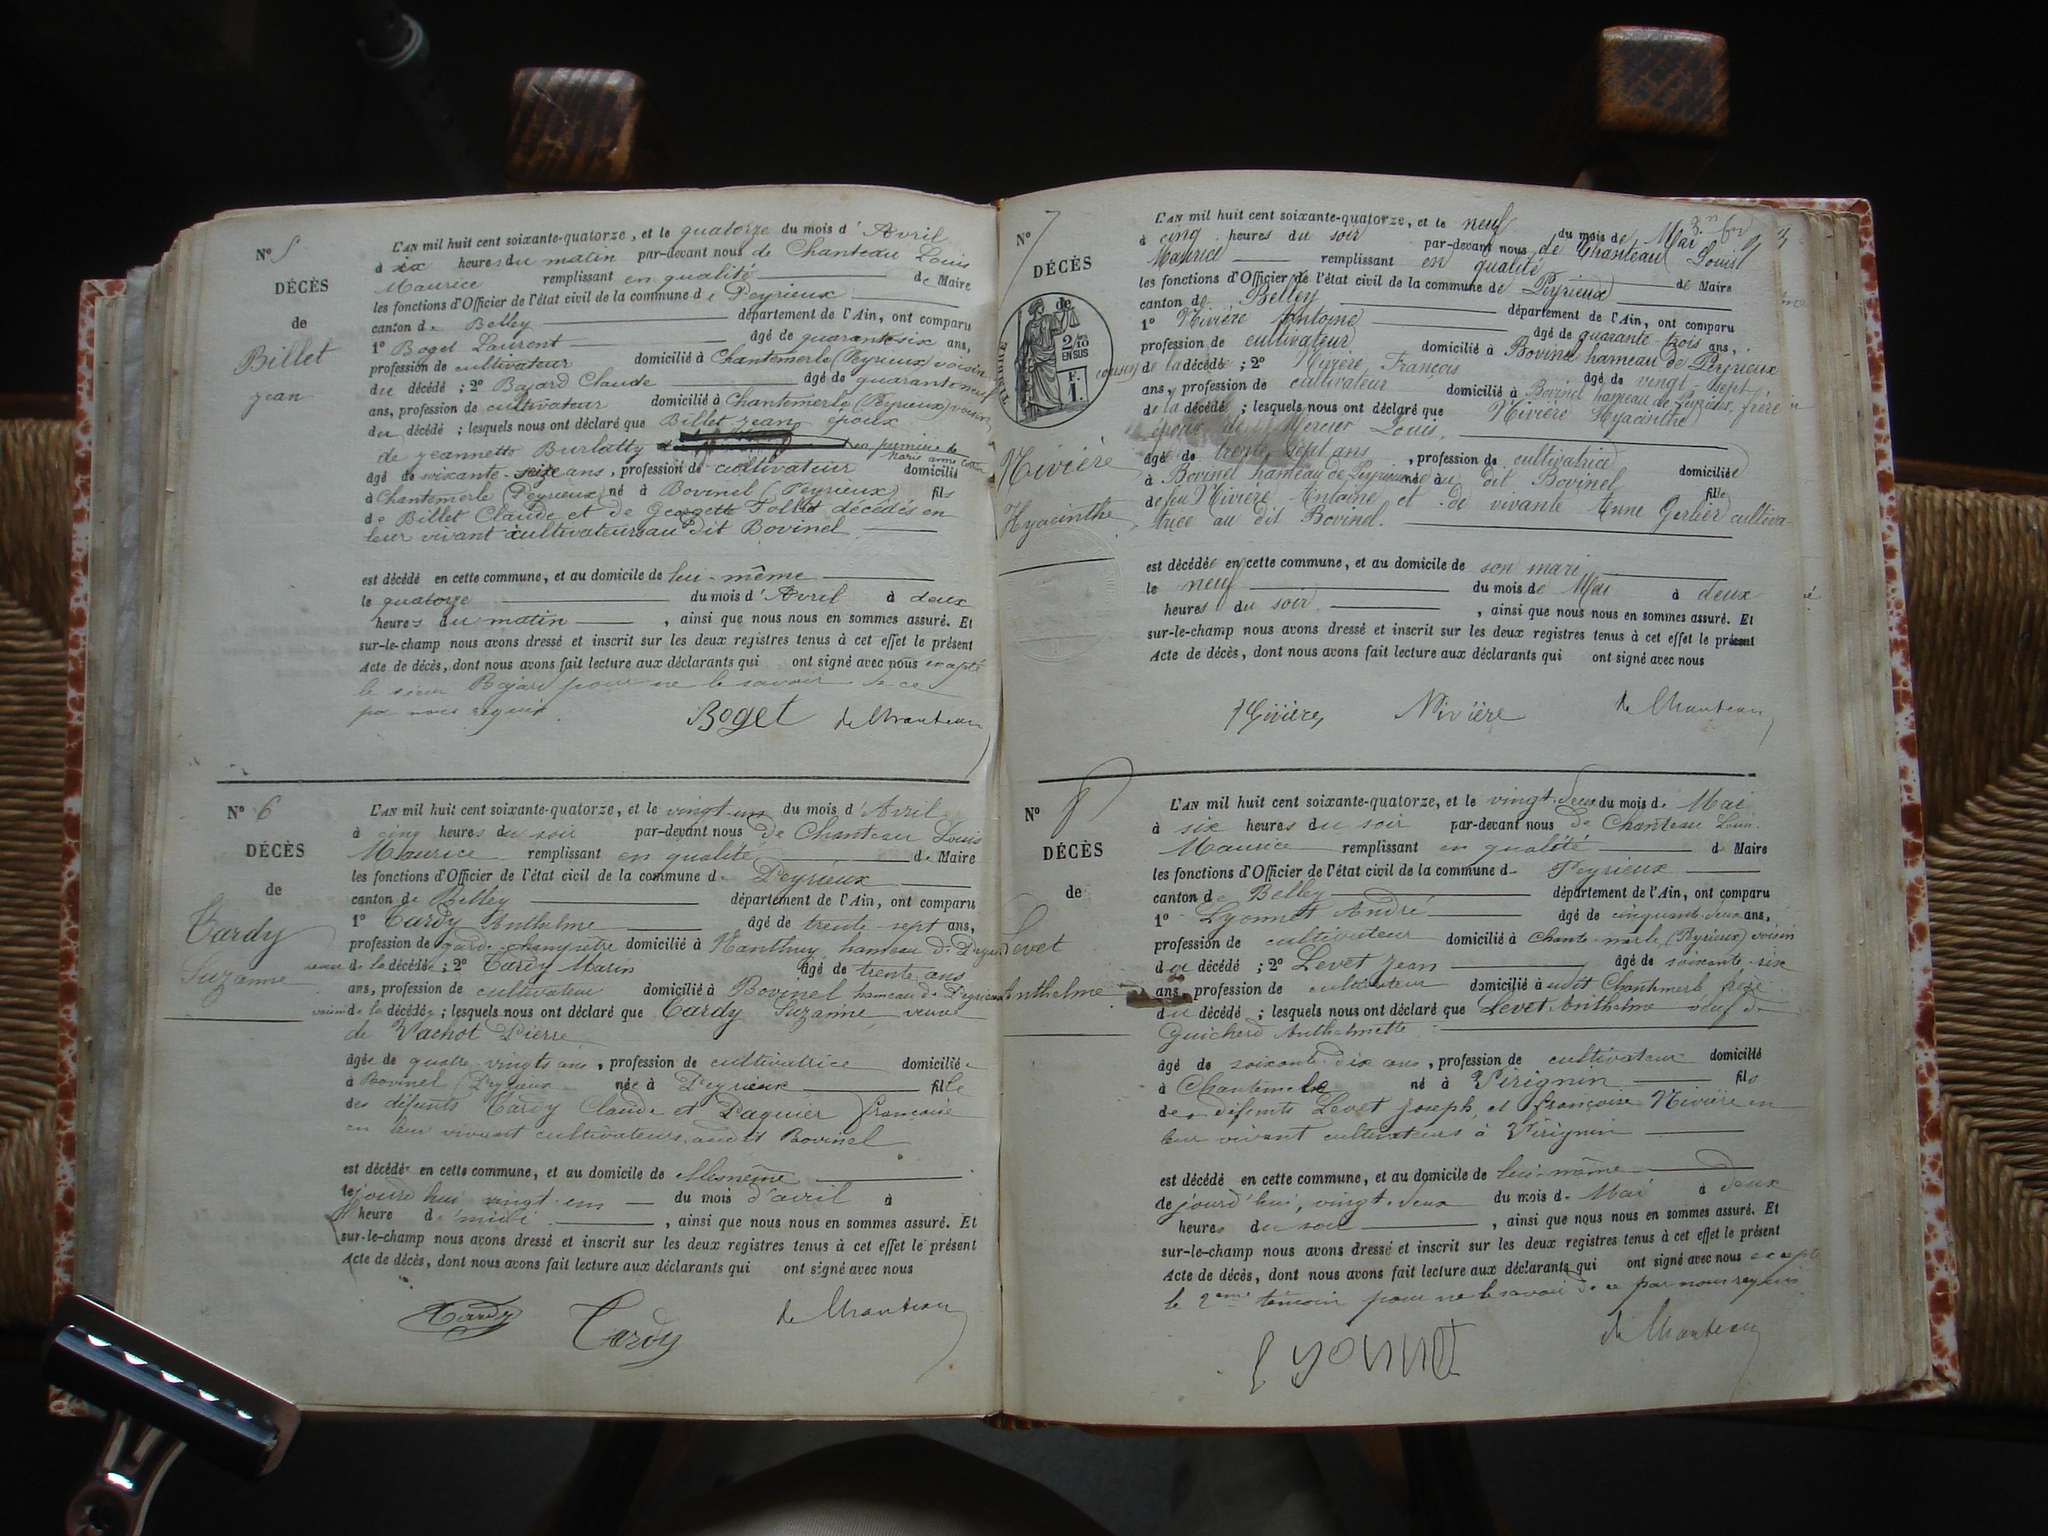 N° 5
DÉCÈS
de
Billet
Jean
L'AN mil huit cent soixante-quatorze, et le quatorze du mois d'Avril
à six heures du matin par-devant nous de Chanteau Louis
Maurice remplissant en qualité de Maire
les fonctions d'Officier de l'état civil de la commune de Peyrieux
canton de Belley département de l'Ain, ont comparu
1° Boget Laurent âgé de quarante six ans,
profession de cultivateur domicilié à Chantemerle (Peyrieux) voisin
du décédé ; 2° Bajard Claude âgé de quarante neuf
ans, profession de cultivateur domicilié à Chantemerle (Peyrieux) voisin
du décédé ; lesquels nous ont déclaré que Billet Jean, époux
de Jeannette Burlatty
âgé de soixante-seize ans, profession de cultivateur domicilié
à Chantemerle (Peyrieux) né à Bovinel (Peyrieux) fils
de Billet Claude et de Georgette décédés en
leur vivant cultivateurs au dit Bovinel
est décédé en cette commune, et au domicile de lui-même
le quatorze du mois d'Avril à deux
heures du matin , ainsi que nous nous en sommes assuré. Et
sur-le-champ nous avons dressé et inscrit sur les deux registres tenus à cet effet le présent
Acte de décès, dont nous avons fait lecture aux déclarants qui ont signé avec nous excepté
le sieur Bajard pour ne le savoir de ce
par nous requis.
Boget de Chanteau
N° 6
DÉCÈS
de
Tardy
Suzanne
L'AN mil huit cent soixante-quatorze, et le vingt-un du mois d'Avril
à cinq heures du soir par-devant nous de Chanteau Louis
Maurice remplissant en qualité de Maire
les fonctions d'Officier de l'état civil de la commune de Peyrieux
canton de Belley département de l'Ain, ont comparu
1° Tardy Anthelme âgé de trente-sept ans,
profession de garde-champêtre domicilié à Nanthuy hameau de Peyrieux
neveu de la décédée ; 2° Tardy Marin âgé de trente ans
ans, profession de cultivateur domicilié à Bovinel hameau de Peyrieux
voisin de la décédée ; lesquels nous ont déclaré que Tardy Suzanne, veuve
de Vachot Pierre
âgée de quatre-vingts ans, profession de cultivatrice domiciliée
à Bovinel (Peyrieux née à Peyrieux fille
des défunts Tardy Claude et Paquier françoise
en leur vivant cultivateurs, audit Bovinel
est décédée en cette commune, et au domicile de elle même
le jourd'hui vingt-un du mois d'avril à
heure de midi , ainsi que nous nous en sommes assuré. Et
sur-le-champ nous avons dressé et inscrit sur les deux registres tenus à cet effet le présent
Acte de décès, dont nous avons fait lecture aux déclarants qui ont signé avec nous
Tardy Tardy de Chanteau
N° 7
DÉCÈS
de
TIMBRE
2/10
EN SUS
F.
1.
Nivière
Hyacinthe
L'AN mil huit cent soixante-quatorze, et le neuf du mois de Mai
à cinq heures du soir par-devant nous de Chanteau Louis
Maurice remplissant en qualité de Maire
les fonctions d'Officier de l'état civil de la commune de Peyrieux
canton de Belley département de l'Ain, ont comparu
1° Nivière Antoine âgé de quarante-trois ans,
profession de cultivateur domicilié à Bovinel hameau de Peyrieux
cousin de la décédée ; 2° Nivière François âgé de vingt-sept
ans, profession de cultivateur domicilié à Bovinel hameau de Peyrieux, frère
de la décédée ; lesquels nous ont déclaré que Nivière Hyacinthe
épouse de Mercier Louis,
âgée de trente sept ans , profession de cultivatrice domiciliée
à Bovinel hameau de Peyrieux née au dit Bovinel fille
de feu Nivière Antoine et de vivante Anne Gerlier cultiva-
trice au dit Bovinel.
est décédée en cette commune, et au domicile de son mari
le neuf du mois de Mai à deux
heures du soir. , ainsi que nous nous en sommes assuré. Et
sur-le-champ nous avons dressé et inscrit sur les deux registres tenus à cet effet le présent
Acte de décès, dont nous avons fait lecture aux déclarants qui ont signé avec nous
Nivière Nivière de Chanteau
N° 8
DÉCÈS
de
Levet
Anthelme
L'AN mil huit cent soixante-quatorze, et le vingt-deux du mois de Mai
à six heures du soir par-devant nous de Chanteau Louis
Maurice remplissant en qualité de Maire
les fonctions d'Officier de l'état civil de la commune de Peyrieux
canton de Belley département de l'Ain, ont comparu
1° Lyonnet André âgé de cinquante-deux ans,
profession de cultivateur domicilié à Chante-merle, (Peyrieux) voisin
du décédé ; 2° Levet Jean âgé de soixante-six
ans, profession de cultivateur domicilié à udit Chantmerle frère
du décédé ; lesquels nous ont déclaré que Levet Anthelme veuf de
Guicherd Anthelmette
âgé de soixante-dix ans, profession de cultivateur domicilié
à Chantemerle né à Virignin fils
des défunts Levet Joseph, et françoise Nivière en
leur vivant cultivateurs à Virignin
est décédé en cette commune, et au domicile de lui-même
de jourd'hui, vingt-deux du mois de Mai à deux
heures du soir , ainsi que nous nous en sommes assuré. Et
sur-le-champ nous avons dressé et inscrit sur les deux registres tenus à cet effet le présent
Acte de décès, dont nous avons fait lecture aux déclarants qui ont signé avec nous excepté
le 2eme témoin pour ne le savoir de ce par nous requis
Lyonnet de Chanteau